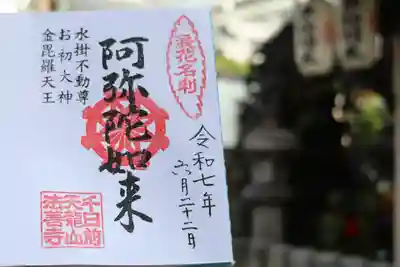 浪花名刹
令和七年
六月二十二日
阿弥陀如来
水掛不動尊
お初大神
金毘羅天王
千日前
天龍山
法善寺